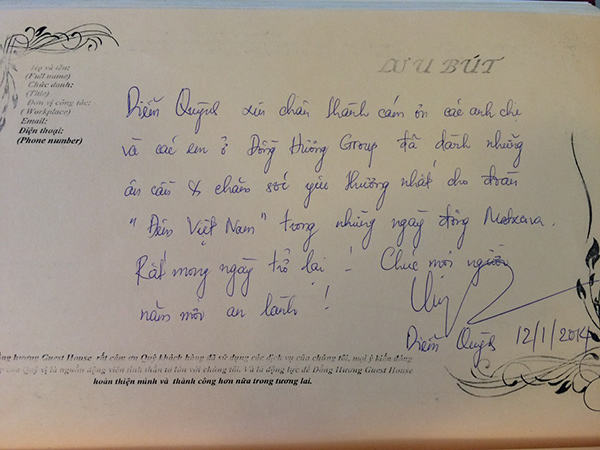 LƯU BÚT
Họ và tên:
(Full name)
Chức danh:
(Title)
Đơn vị công tác:
(Workplace)
Email:
Điện thoại:
(Phone number)
Diễm Quỳnh xin chân thành cám ơn các anh chị
và các em ở Đồng Hương Group đã dành những
ân cần & chăm sóc yêu thương nhất cho đoàn
"Đêm Việt Nam" trong những ngày đông
Rất mong ngày trở lại! Chúc mọi người
năm mới an lành!
Diễm Quỳnh 12/1/2014
hương Guest House rất cảm ơn Quý khách hàng đã sử dụng các dịch vụ của chúng tôi, mọi ý kiến đóng
của Quý vị là nguồn động viên tinh thần to lớn với chúng tôi. Và là động lực để Đồng Hương Guest House
hoàn thiện mình và thành công hơn nữa trong tương lai.